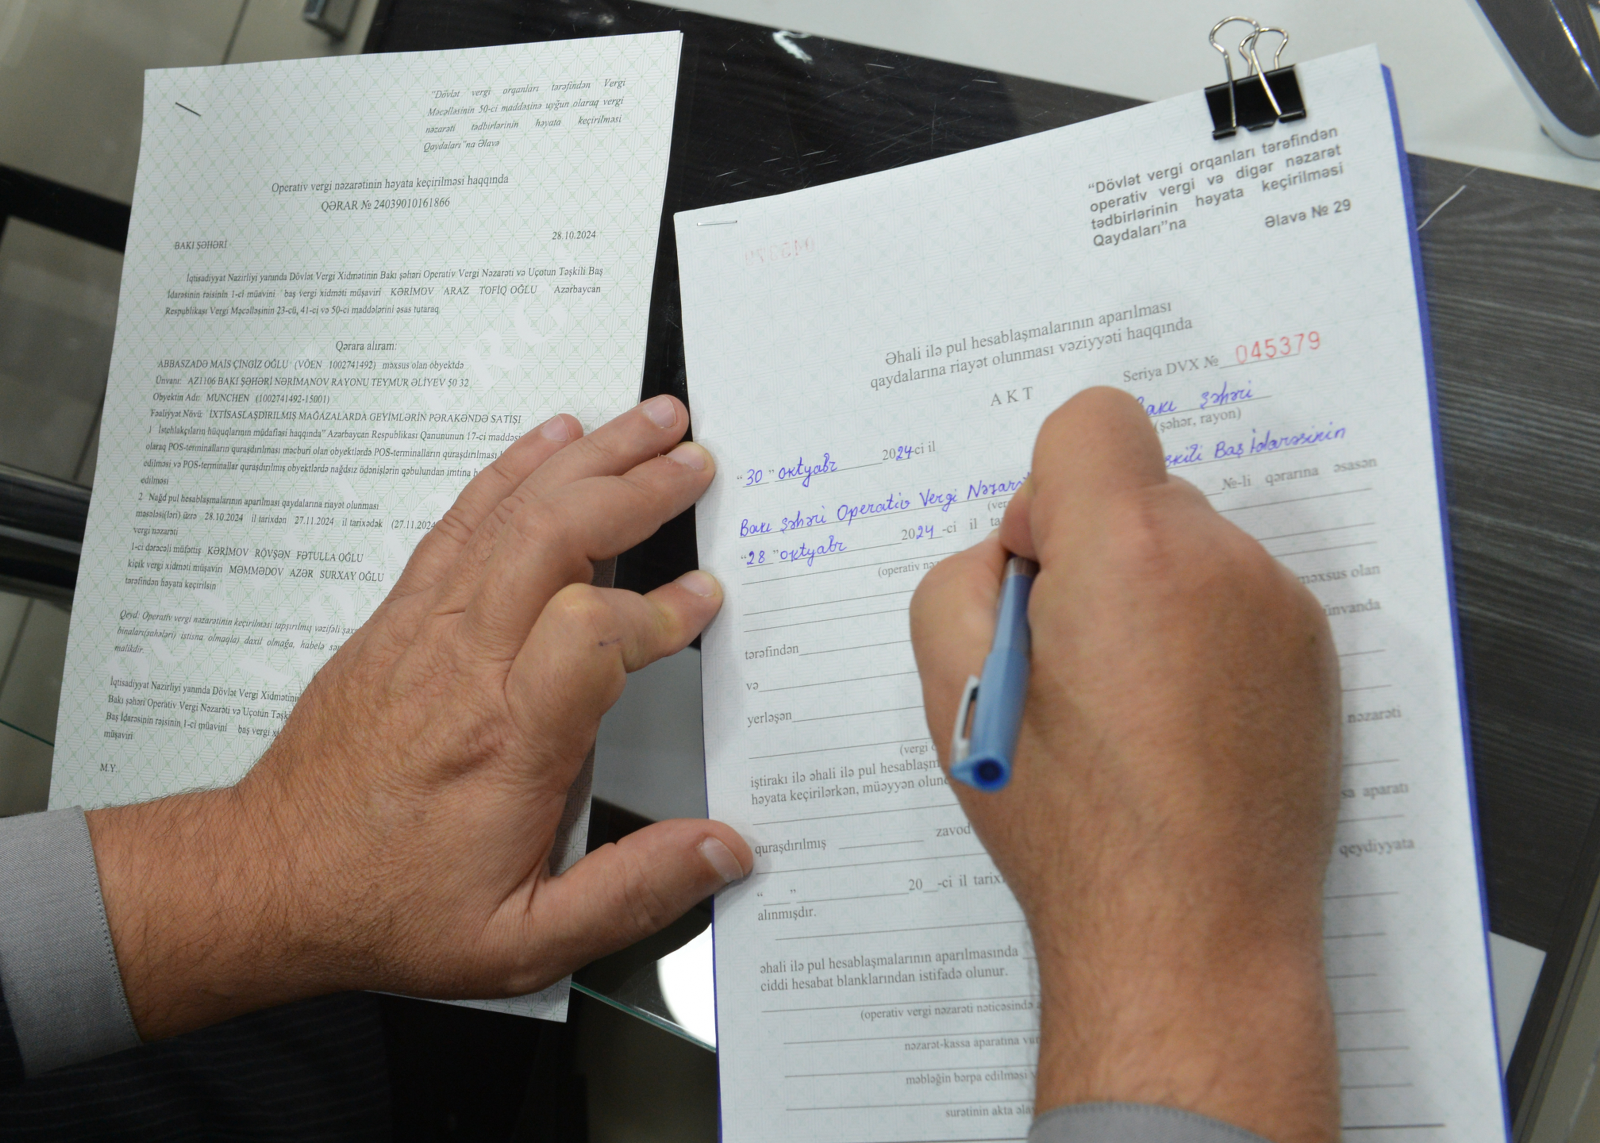 "Dövlət vergi orqanları tərəfindən Vergi
Məcəlləsinin 50-ci maddəsinə uyğun olaraq vergi
nəzarəti tədbirlərinin həyata keçirilməsi
Qaydaları"na Əlavə
Operativ vergi nəzarətinin həyata keçirilməsi haqqında
QƏRAR № 24039010161866
BAKI ŞƏHƏRİ
28.10.2024
İqtisadiyyat Nazirliyi yanında Dövlət Vergi Xidmətinin Bakı şəhəri Operativ Vergi Nəzarəti və Uçotun Təşkili Baş
İdarəsinin rəisinin 1-ci müavini baş vergi xidməti müşaviri KƏRİMOV ARAZ TOFİQ OĞLU Azərbaycan
Respublikası Vergi Məcəlləsinin 23-cü, 41-ci və 50-ci maddələrini əsas tutaraq
Qərara alıram:
ABBASZADƏ MAİS ÇİNGİZ OĞLU (VÖEN 1002741492) məxsus olan obyektdə
Ünvanı: AZ1106 BAKI ŞƏHƏRİ NƏRİMANOV RAYONU TEYMUR ƏLİYEV 50 32
Obyektin Adı: MUNCHEN (1002741492-15001)
Fəaliyyət Növü: İXTİSASLAŞDIRILMIŞ MAĞAZALARDA GEYİMLƏRİN PƏRAKƏNDƏ SATIŞI
1 İstehlakçıların hüquqlarının müdafiəsi haqqında" Azərbaycan Respublikası Qanununun 17-ci maddəsi
olaraq POS-terminalların quraşdırılması məcburi olan obyektlərdə POS-terminalların quraşdırılması
edilməsi və POS-terminallar quraşdırılmış obyektlərdə nağdsız ödənişlərin qəbulundan imtina
edilməsi
2 Nağd pul hesablaşmalarının aparılması qaydalarına riayət olunması
məsələsi(ləri) üzrə 28.10.2024 il tarixdən 27.11.2024 il tarixədək (27.11.2024
vergi nəzarəti
1-ci dərəcəli müfəttiş KƏRİMOV RÖVŞƏN FƏTULLA OĞLU
kiçik vergi xidməti müşaviri MƏMMƏDOV AZƏR SURXAY OĞLU
tərəfindən həyata keçirilsin
Qeyd: Operativ vergi nəzarətinin keçirilməsi tapşırılmış vəzifəli şəx
binaları(sahələri) istisna olmaqla) daxil olmağa, habelə
malikdir.
İqtisadiyyat Nazirliyi yanında Dövlət Vergi Xidmətini
Bakı şəhəri Operativ Vergi Nəzarəti və Uçotun Təşk
Baş İdarəsinin rəisinin 1-ci müavini baş vergi xi
müşaviri
M.Y.
"Dövlət vergi orqanları tərəfindən
operativ vergi və digər nəzarət
tədbirlərinin həyata keçirilməsi
Qaydaları"na
Əlavə № 29
Əhali ilə pul hesablaşmalarının aparılması
qaydalarına riayət olunması vəziyyəti haqqında
AKT
Seriya DVX № 045379
Bakı şəhəri
(şəhər, rayon)
"30" oktyabr 2024-ci il
Bakı şəhəri Operativ Vergi Nəzarət
şkili Baş İdarəsinin
"28" oktyabr 2024-ci il ta
№-li qərarına əsasən
(operativ nə
məxsus olan
tərəfindən
ünvanda
və
yerləşən
nəzarəti
(vergi
iştirakı ilə əhali ilə pul hesablaşm
həyata keçirilərkən, müəyyən olun
sa aparatı
quraşdırılmış zavod
qeydiyyata
" " 20 -ci il tarix
alınmışdır.
əhali ilə pul hesablaşmalarının aparılmasında
ciddi hesabat blanklarından istifadə olunur.
(operativ vergi nəzarəti nəticəsində
nəzarət-kassa aparatına vur
məbləğin bərpa edilməsi
surətinin akta əla